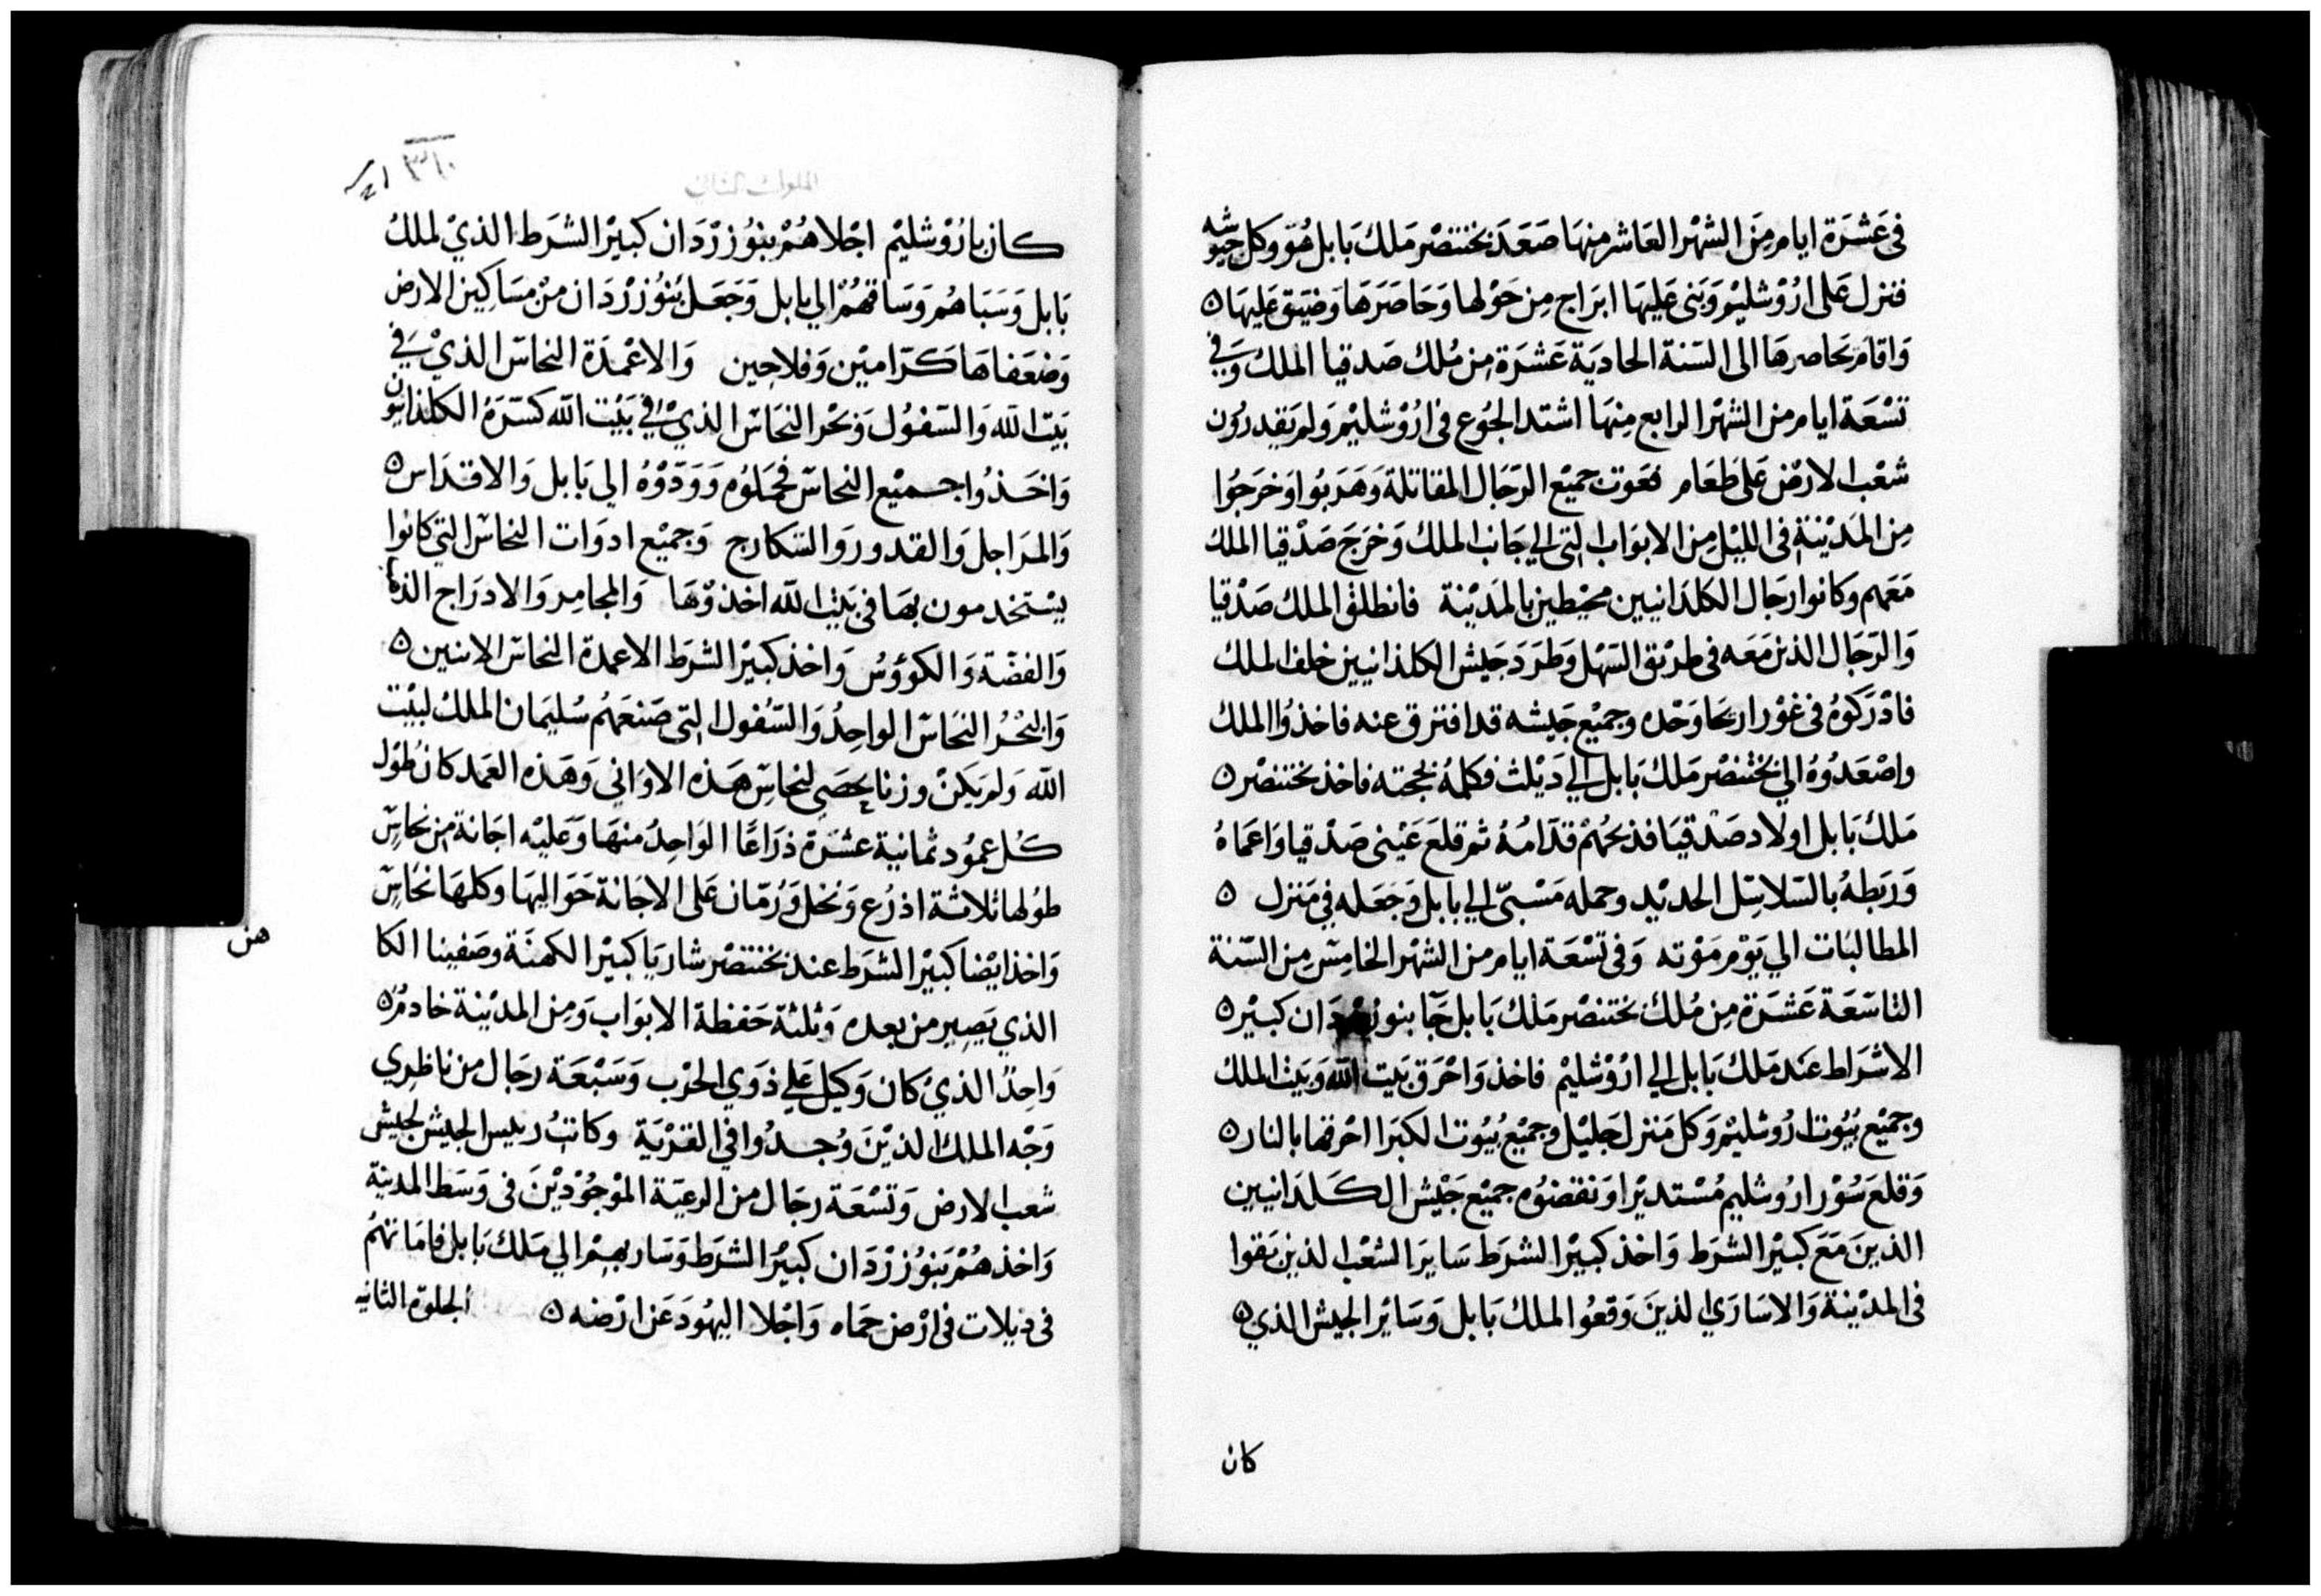 فى عَشرَة ايام مِنَ الشهْر العَاشر منهَا صَعَدَ بختنصْر مَلك بَابل هُوَ وكل جيُوشه
فنزل عَلى ارُوْشليْم وَبَنى عَليهَا ابرَاج مِن حَوْلها وَحَاصَرَهَا وَضيَق عَليهَا ه
وَاقامَ يحَاصرهَا الى السّنة الحاديَة عَشرَة مِن مُلك صَدقيا الملك وَفي
تسْعَة ايام من الشهْر الرابع مِنهَا اشتد الجُوع فى ارُوْشليْم وَلم يَقدرُون
شعْب الارْض عَلى طعَام فعَوت جميْع الرّجَال المقاتلة وَهَرَبُوا وَخرَجُوا
مِن المَدْيْنة فى الليْل مِن الابوَاب التي الي جَانب الملك وَخرَجَ صَدْقيا الملك
مَعَهم وكانوا رجَال الكلدَانيين محيْطين بالمَديْنة فانطلق الملك صَدْقيا
وَالرّجَال الذين مَعَه فى طريْق السّهْل وَطرَدَ جَيش الكلدانيين خلف الملك
فادْرَكوُهُ فى غوْر اريحَا وَحْده وجميْع جَيشه قد افترق عنه فاخذوُا الملك
واصْعَدُوُهُ الي بختنصْر مَلك بَابل الي دَيْلث فكلمهُ بحجته فاخذ بختنصْر ه
مَلك بَابل اولاد صَدْقيَا فذبحُهمْ قدّامهُ ثم قلعَ عَيْنى صَدْقيا وَاعمَاهُ
وَرَبَطهُ بالسّلاسِل الحديْد وحمله مَسْبىّ الي بابل وَجَعَله في مَنزل ه
المطالبَات الي يَوْم مَوْته وَفى تسْعَة ايام من الشهْر الخامِسْ مِن السّنة
التاسَعَة عَشرَة مِن مُلك بختنصْر مَلك بَابل جَآ بنوزردَان كبيْر ه
الاشرَاط عند مَلك بَابل الي ارُوْشليْم فاخذ وَاحْرَق بَيت الله وَبَيث الملك
وجميْع بُيُوت ارُوشليْم وَكل مَنزل جَليْل وجميْع بُيُوت الكبرَا احْرقها بالنار ه
وَقلعَ سُوْر ارُوشليم مُسْتديْرا وَنقضوُه جميْع جَيْش الكلدَانيين
الذينَ مَعَ كبيْر الشرَط وَاخذ كبيْر الشرَط سَايرَ الشعْب الذين بَقوا
فى المدْيْنة وَالاسَارَي الذينَ وَقعُوا لملك بَابل وَسَايْر الجيش الذي ه
كان
٣٦٠
الملوك الثاني
كان بارُوْشليْم اجْلاهُمْ بنوُزرْدَان كبيْر الشرَط الذيْ لملك
بَابل وَسَبَاهُم وَسَاقهُمْ الي بابل وَجَعَل بنوُزرْدَان منْ مسَاكين الارض
وَضعَفاهَا كرّاميْن وَفلاحين وَالاعْمدَة النحاسّ الذيْ في
بَيْت الله وَالسّفوُل وَبَحْر النحَاسّ الذيْ في بَيْت الله كسّرَهُ الكلدانيون
وَاخذُوا جميْع النحاسّ فحمَلوُه وَوَدّوْهُ الي بَابل وَالاقدَاس ه
وَالمرَاجل وَالقدور وَالسّكارج وَجميْع ادوَات النحاس التي كانوا
يسْتخدمون بهَا في بَيث الله اخذوْهَا وَالمجامِر وَالادرَاج الذهب
وَالفضّة وَالكوُوُسْ وَاخذ كبيْر الشرَط الاعمدة النحاس الاثنين ه
وَالبْحْر النحَاسّ الواحِدُ وَالسّفول التى صَنعَهُم سُليمَان الملك لبيْت
الله وَلم يَكنْ وزنا يحصَي لنحاسِ هَذه الاوَاني وَهَذه العَمد كان طوْل
كل عموُد ثمانية عشرَة ذرَاعًا الوَاحِدُ منهَا وَعَليْه اجَانة مِن نحاسّ
طوُلها ثلاثة اذرُع وَنخل وَرُمّان عَلى الاجَانة حَوَاليهَا وكلهَا نحَاسّ
وَاخذ ايْضا كبيْر الشرَط عند بختنصْر شاريَا كبيْر الكهنَة وصَفينا الكا
هن
الذي يَصِير من بعده وَثلثة حَفظة الابوَاب وَمِن المدْيْنة خادمُ ه
وَاحِدًا الذيْ كان وَكيل عَلي ذوَي الحرْب وَسَبْعَة رجَال من ناظِري
وَجْه الملك الذيْنَ وُجدُوا في القرْيَة وكاتبْ رييس الجيش لجيش
شعب الارض وَتسْعَة رجَال من الرعيَة الموْجُوْديْنَ فى وَسَط المدينة
وَاخذهُمْ بَنوُزرْدَان كبيْر الشرَط وَسَار بهمْ الي مَلك بَابل فامَاتهُم
فى ذيلات فى ارْض حمَاه وَاجْلا اليهُودَ عَن ارْضه ه الجلوة الثانيه